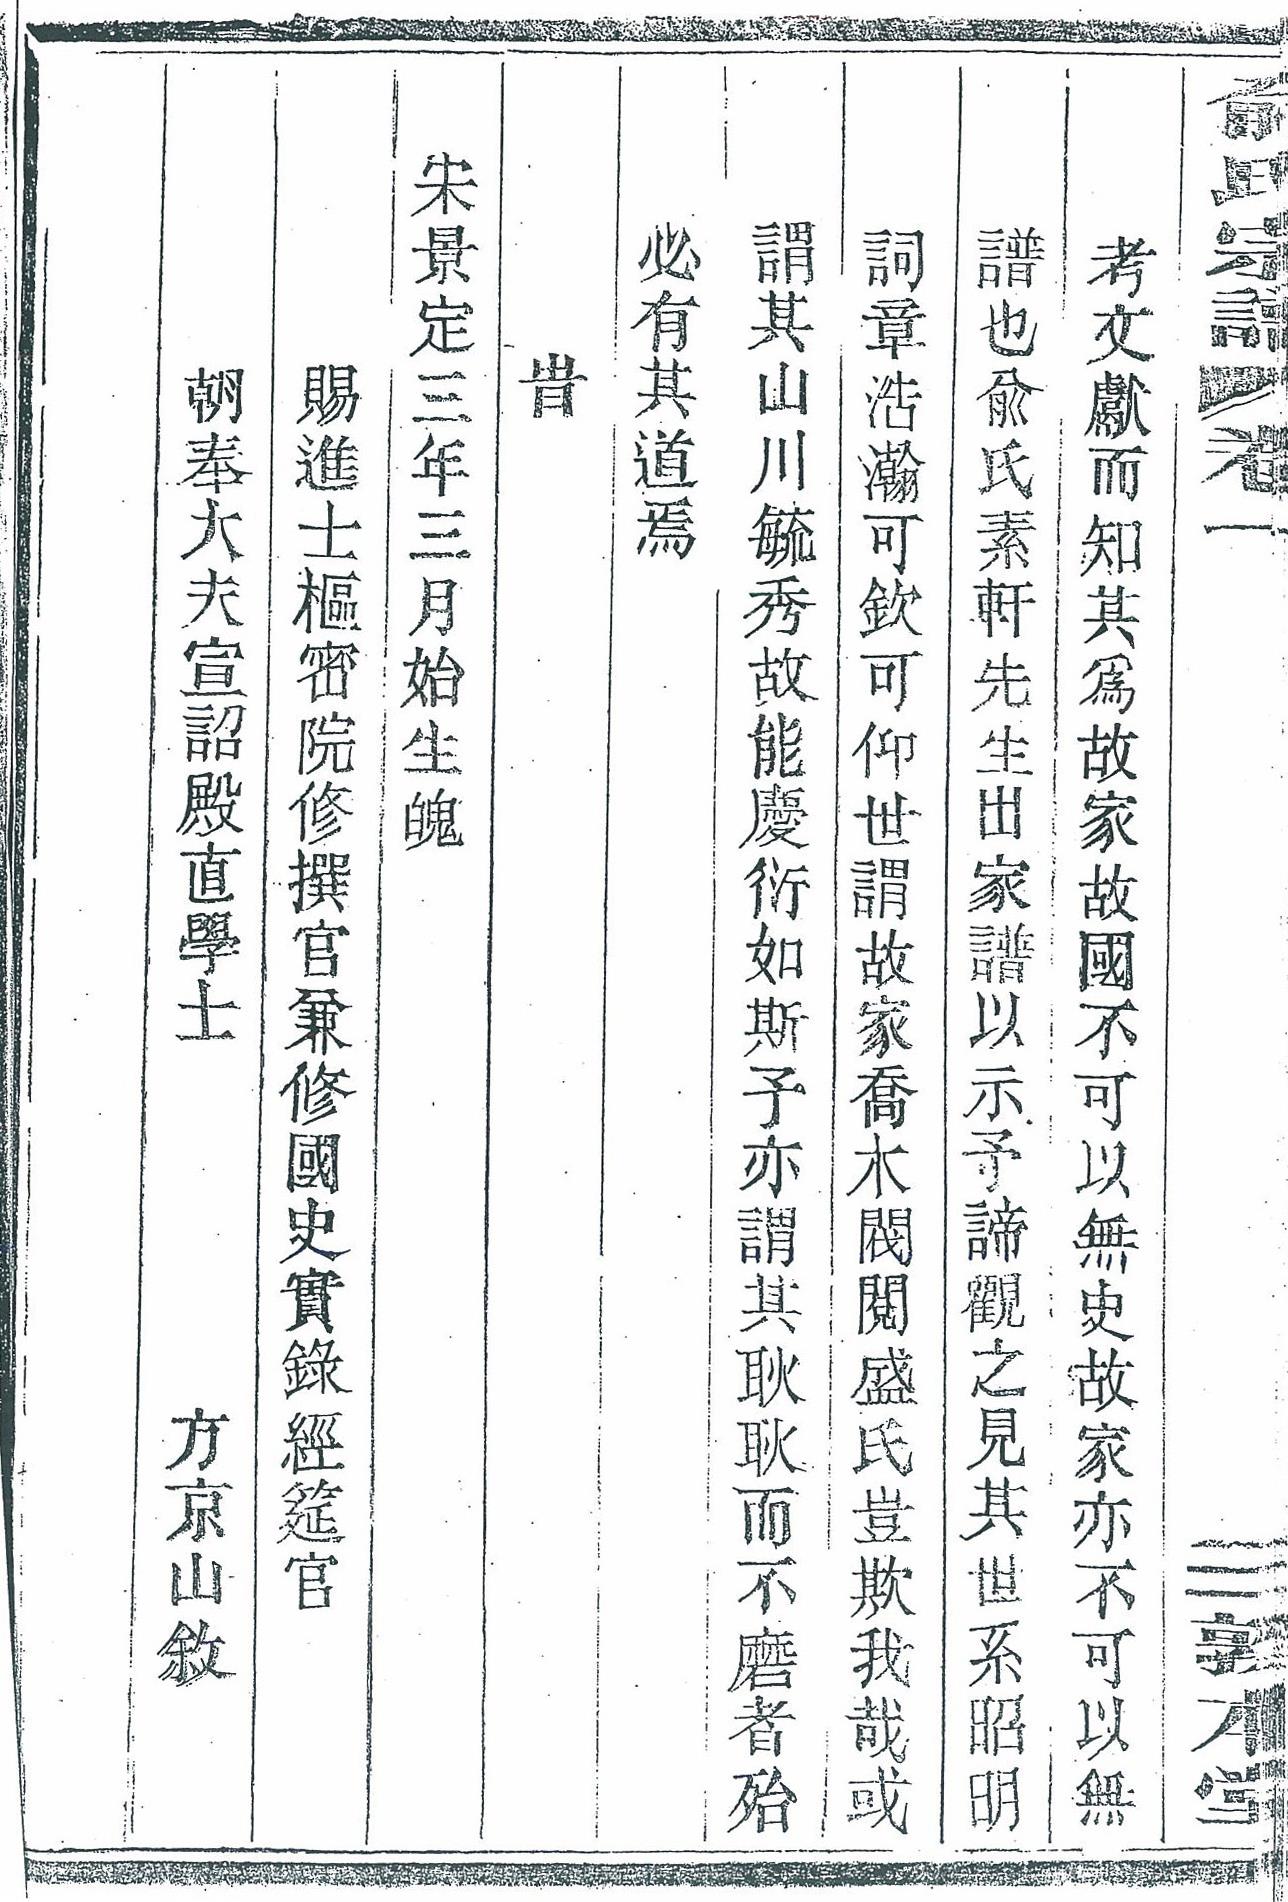 俞氏宗譜 卷一 三 敦本堂
考文獻而知其爲故家故國不可以無史故家亦不可以無
譜也俞氏素軒先生出家譜以示予諦觀之見其世系昭明
詞章浩瀚可欽可仰世謂故家喬木閥閱盛氏豈欺我哉或
謂其山川毓秀故能慶衍如斯予亦謂其耿耿而不磨者殆
必有其道焉
旹
宋景定三年三月始生魄
賜進士樞密院修撰官兼修國史實錄經筵官
朝奉大夫宣詔殿直學士 方京山敘